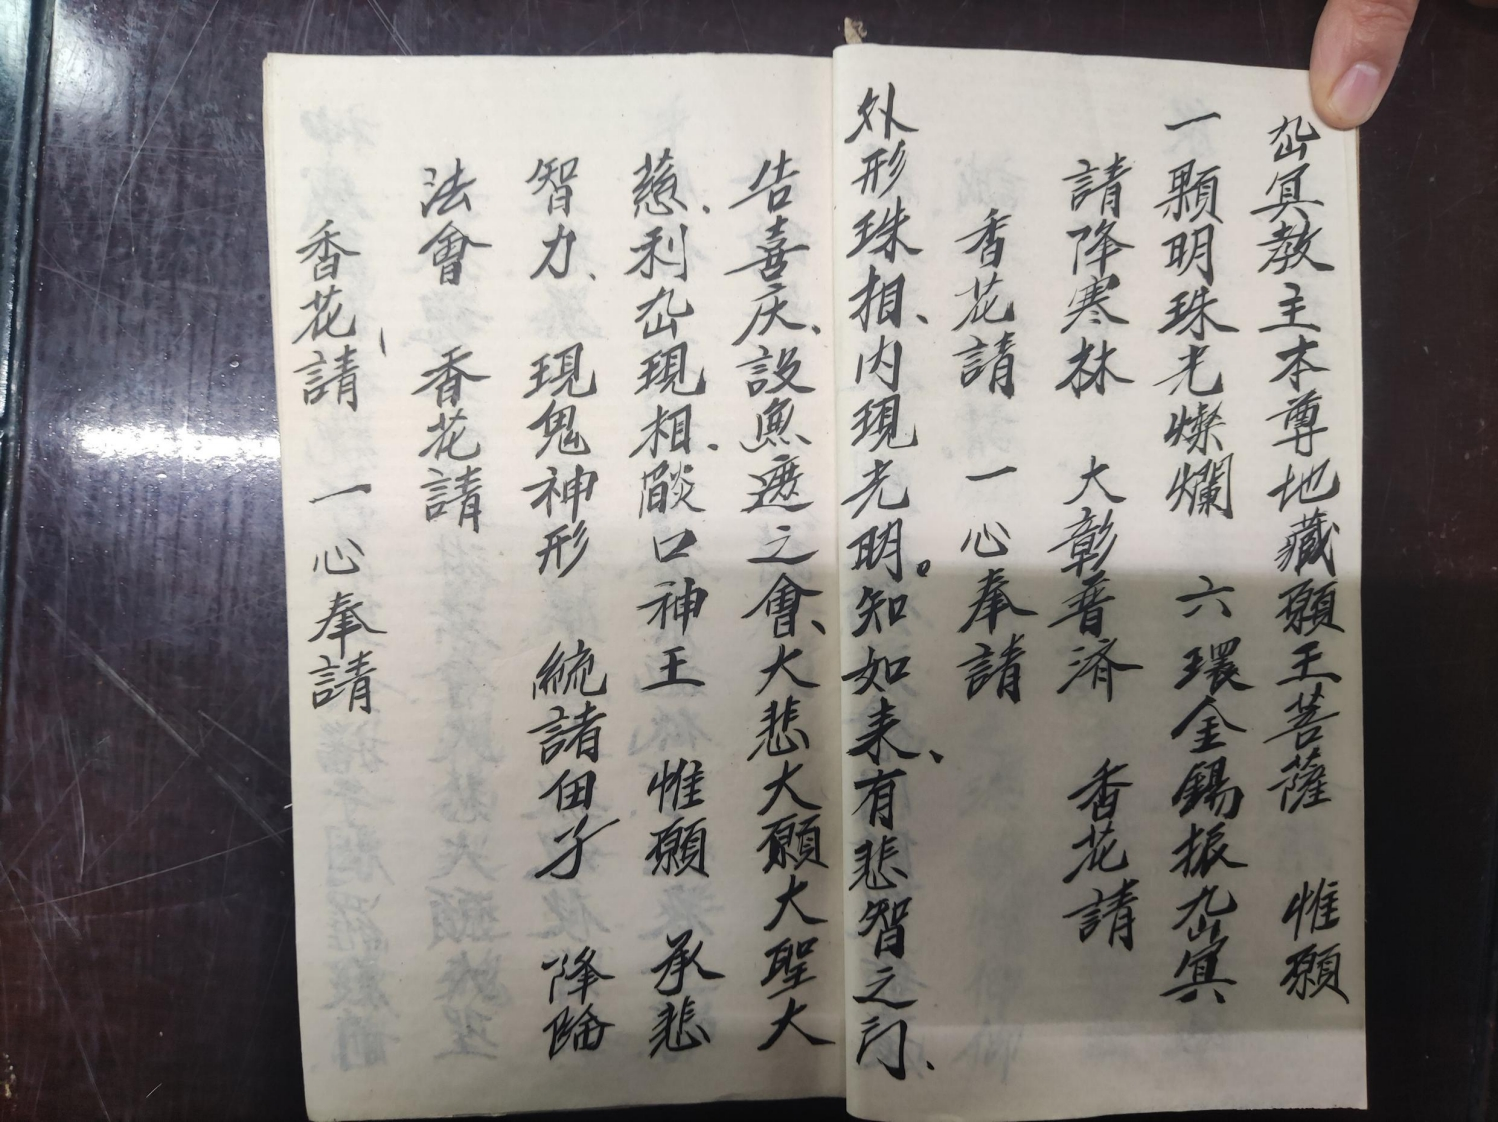 幽冥教主本尊地藏願王菩薩　惟願
一顆明珠光燦爛　六環金錫振九幽冥
請降寒林　大彰普済　香花請
香花請　一心奉請
外形珠相、内現光明。知如来、有悲智之门、
告喜庆、設無遮之會、大悲大願大聖大
慈、利幽現相、燄口神王　惟願　承悲
智力、現鬼神形　統諸田子　降臨
法會　香花請
香花請　一心奉請